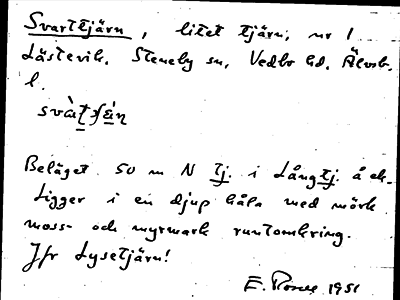 Svarttjärn, litet tjärn, nr 1
Lästevik, Steneby sn, Vedbo hd, Älvsb.
l.
Beläget 50 m N tj. i Långtj. å ek.
Ligger i en djup håla med mörk
moss- och myrmark runtomkring.
Jfr Lysetjärn!
E. 1951